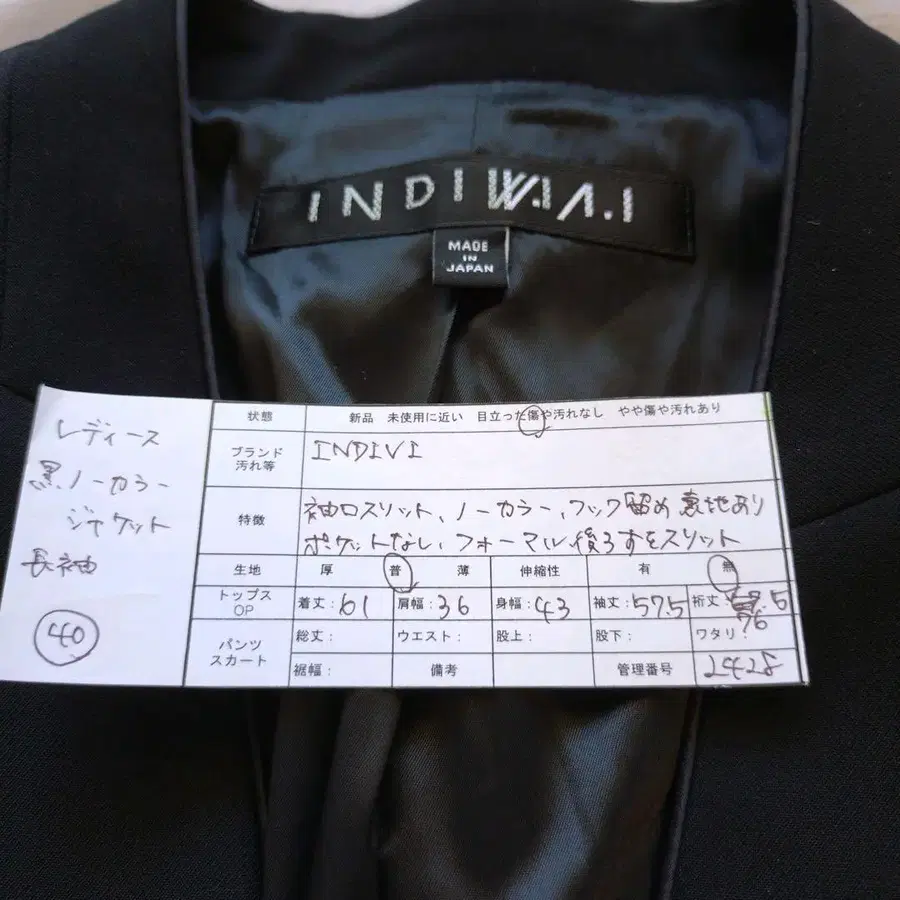 INDIVI
MADE
IN
JAPAN
レディース
黒ノーカラー
ジャケット
長袖
40
状態 新品 未使用に近い 目立った傷や汚れなし やや傷や汚れあり
ブランド
汚れ等
INDIVI
特徴
袖口スリット、ノーカラー、フック留め 裏地あり
ポケットなし、フォーマル 後ろすそスリット
生地 厚 普 薄 伸縮性 有 無
トップス
OP
着丈:61 肩幅:36 身幅:43 袖丈:57.5 裄丈: .5
76
パンツ
スカート
総丈: ウエスト: 股上: 股下: ワタリ:
裾幅: 備考 管理番号 2428